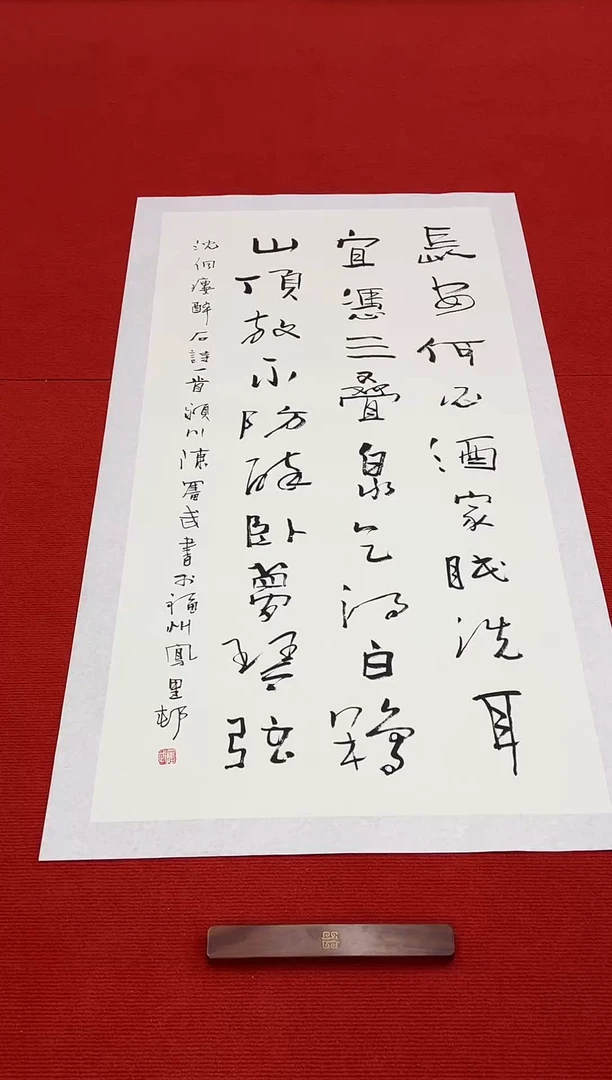 長安何必酒家眠洗耳
宜憑三叠泉乞得白鶴
山頂放不防醉臥夢琴弦
沈侗廔醉石詩一首潁川陳奮武書於福州鳳里邨